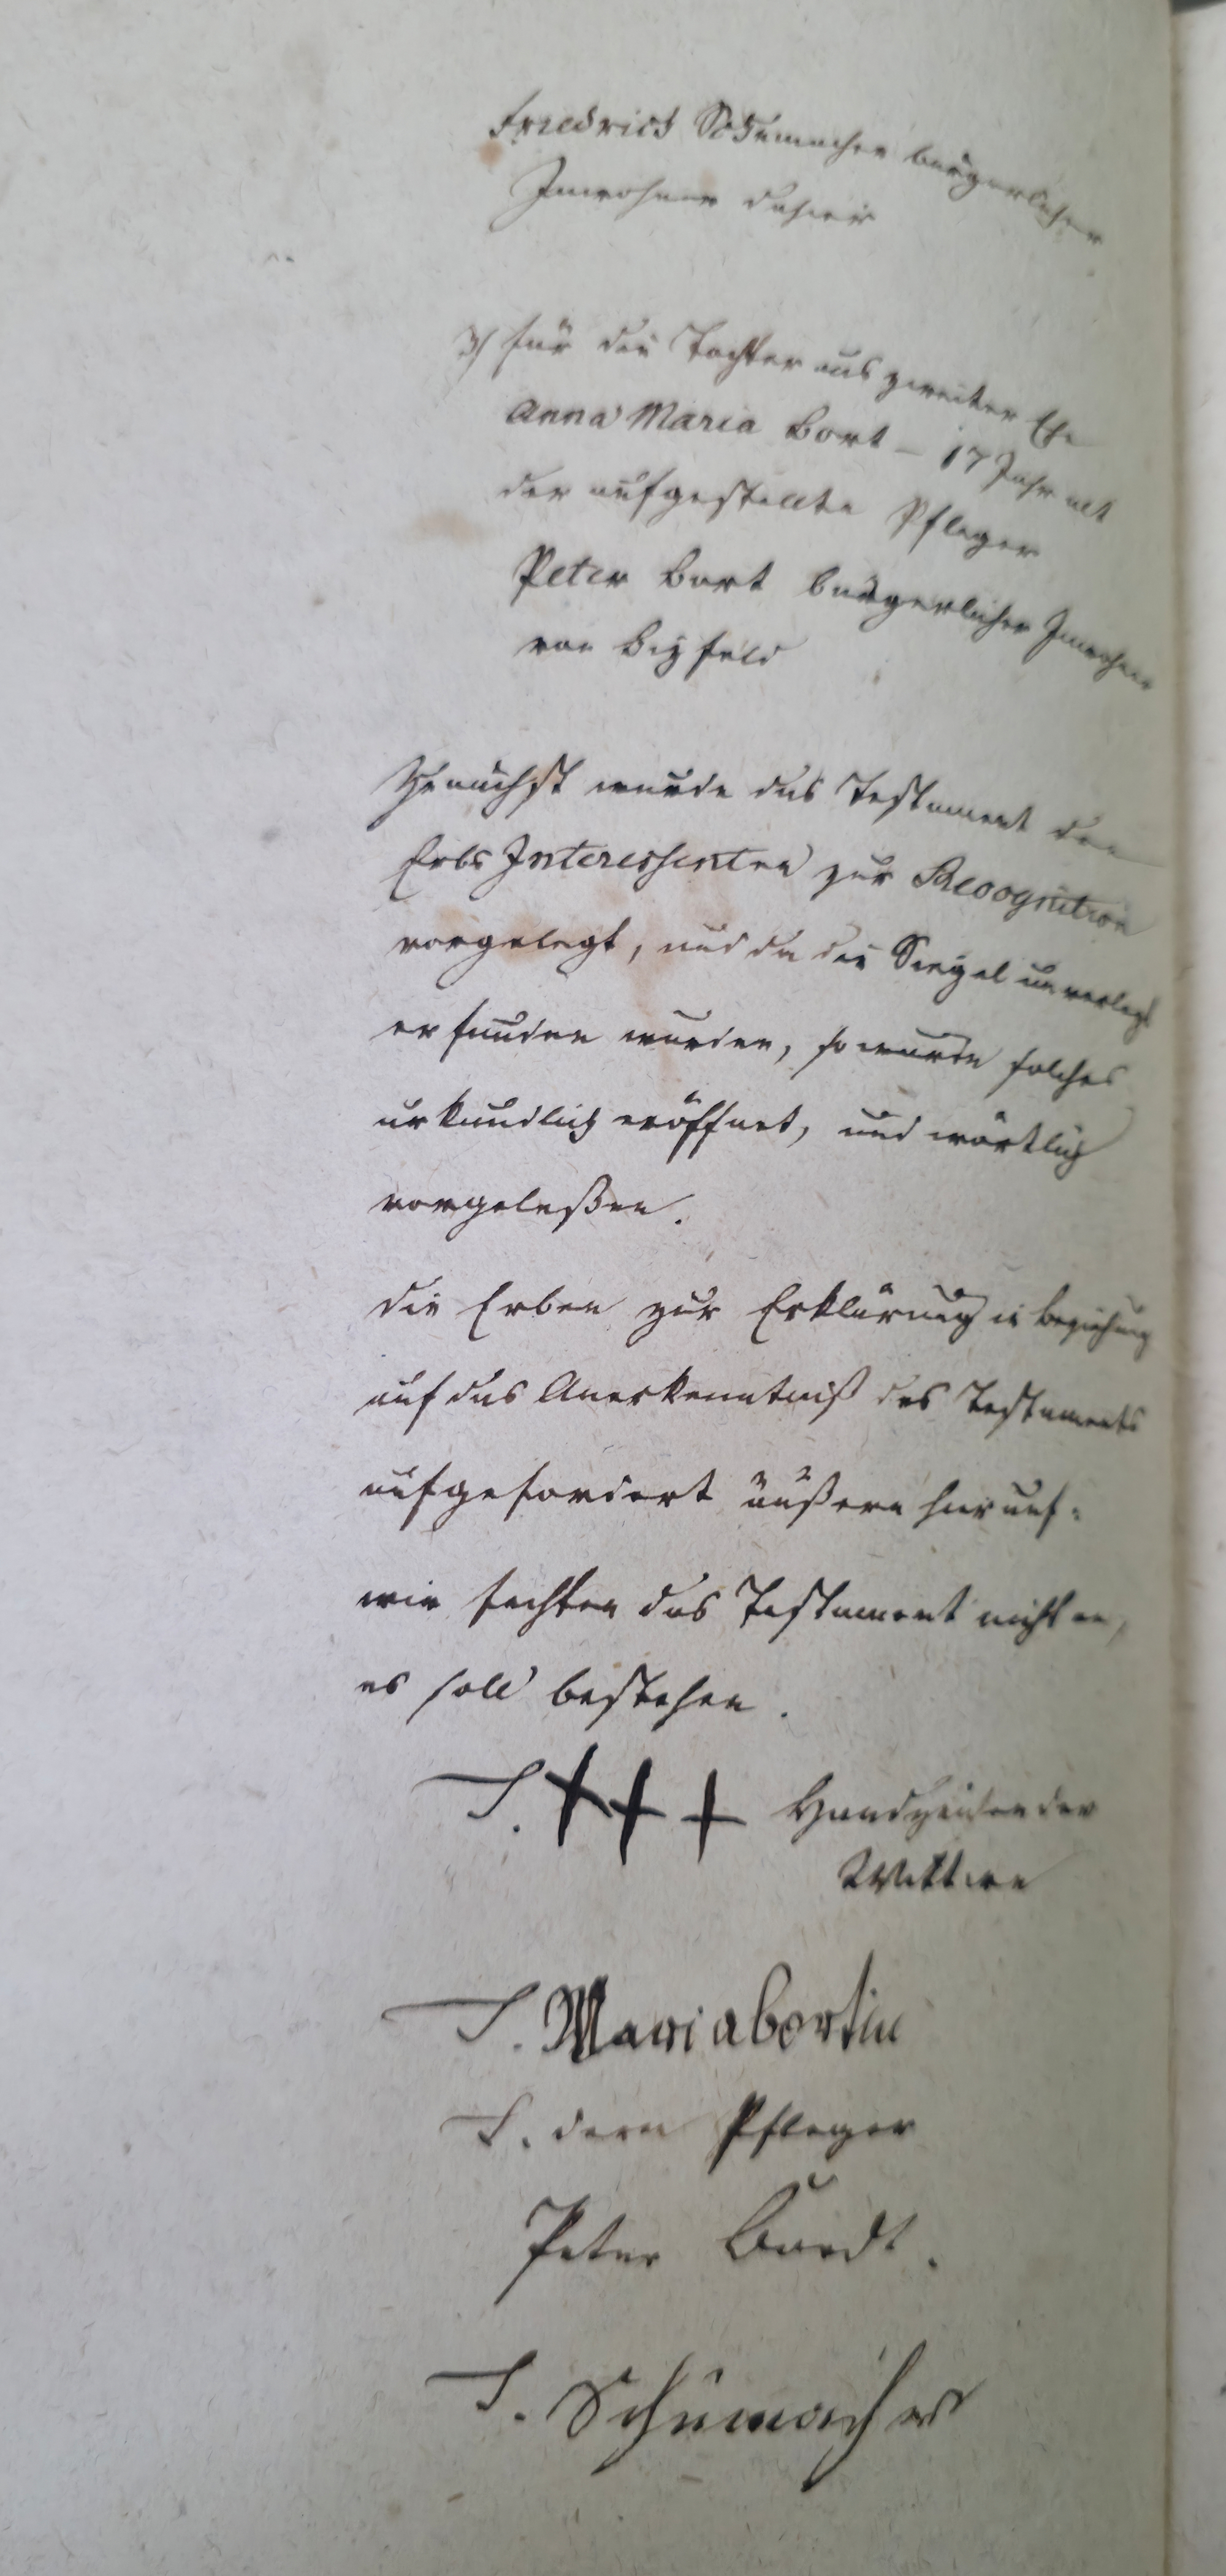 Friedrich Schumacher bürgerlicher
Inwohner dahier
3) für die Tochter aus zweiter Ehe
Anna Maria Bort – 17 Jahr alt
der aufgestellte Pfleger
Peter Bort bürgerlicher Inwohner
von Bizfeld
Zunächst wurde das Testament den
Erbs Interessenten zur Recognition
vorgelegt, und da die Siegel unverlezt
erfunden wurden, so wurde solches
urkundlich eröffnet, und wörtlich
vorgeleßen.
die Erben zur Erklärung in Beziehung
auf das Anerkenntniß des Testaments
aufgefordert äußern hierauf:
wir fechten das Testament nicht an,
es soll bestehen.
T. +++ Handzeichen der
Wittwe
T. Maria bortin
T. dern Pfleger
Peter Bordt.
T. Schumacher